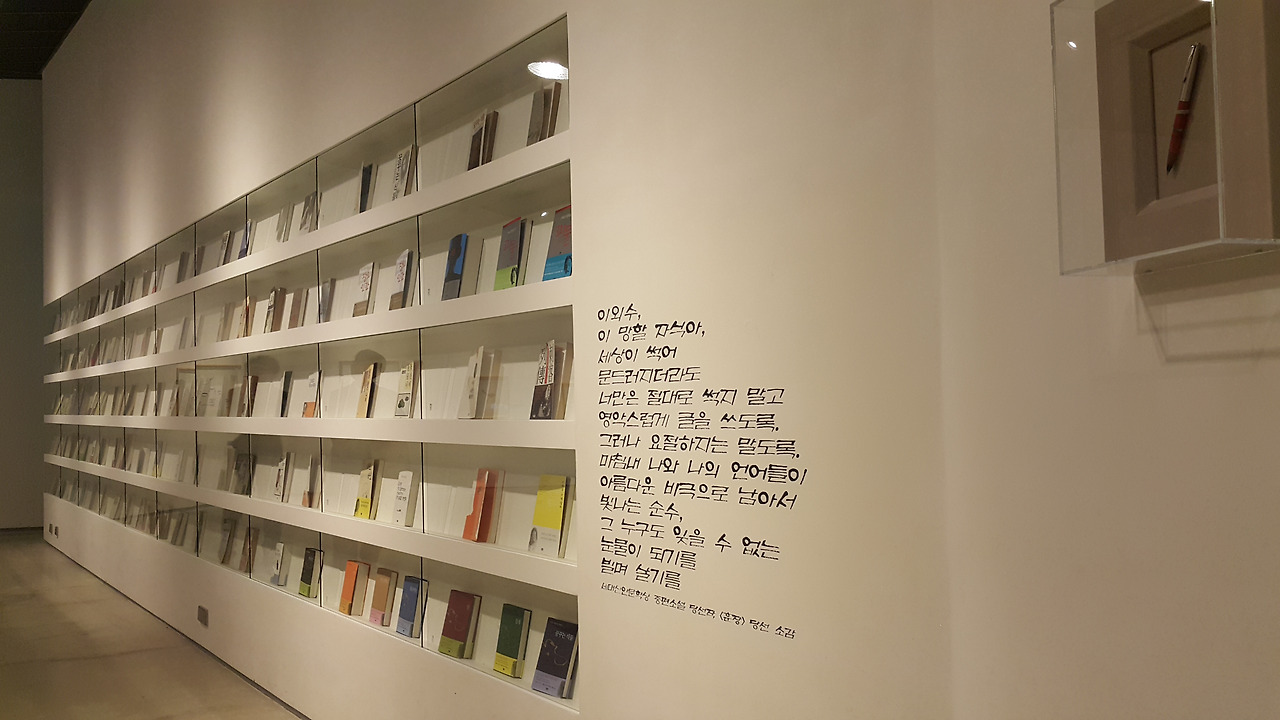 이외수,
이 망할 자식아,
세상이 썩어
문드러지더라도
너만은 절대로 썩지 말고
영악스럽게 글을 쓰도록.
그러나 요절하지는 말도록.
마침내 나와 나의 언어들이
아름다운 비극으로 남아서
빛나는 순수,
그 누구도 잊을 수 없는
눈물이 되기를
빌며 살기를
세대신인문학상 중편소설 당선작, 〈훈장〉 당선 소감